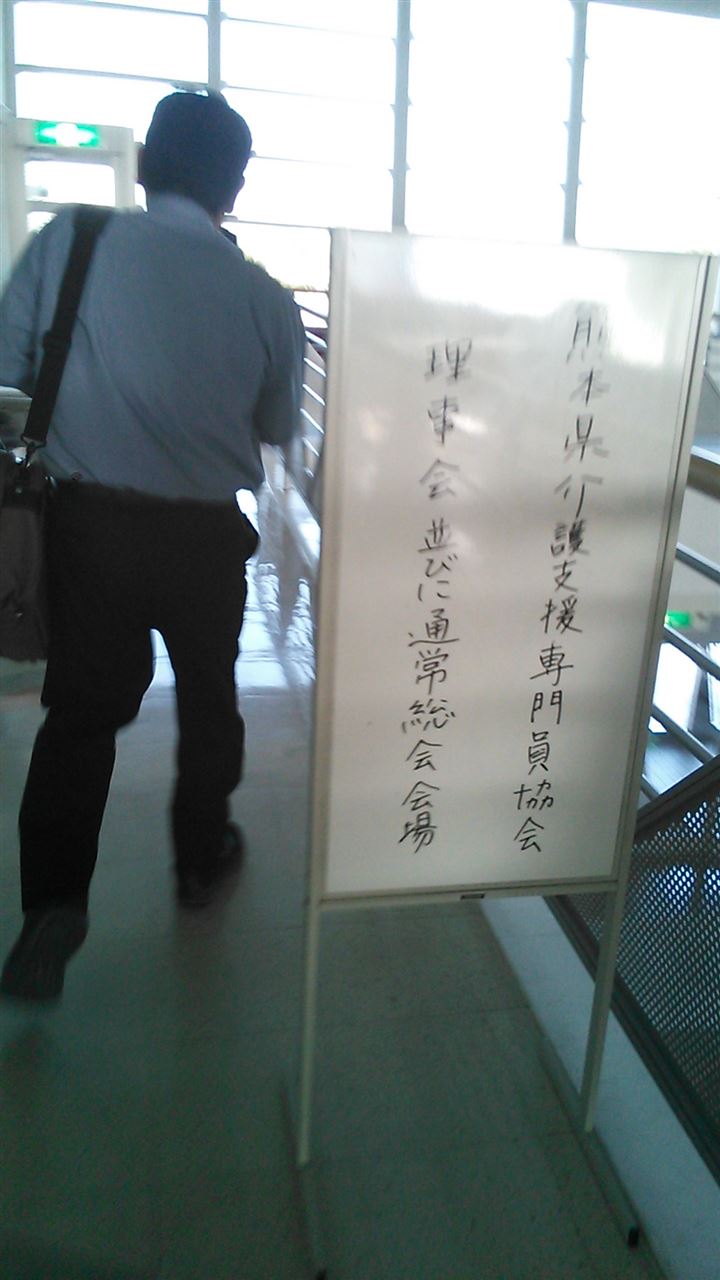 熊本県介護支援専門員協会
理事会並びに通常総会会場